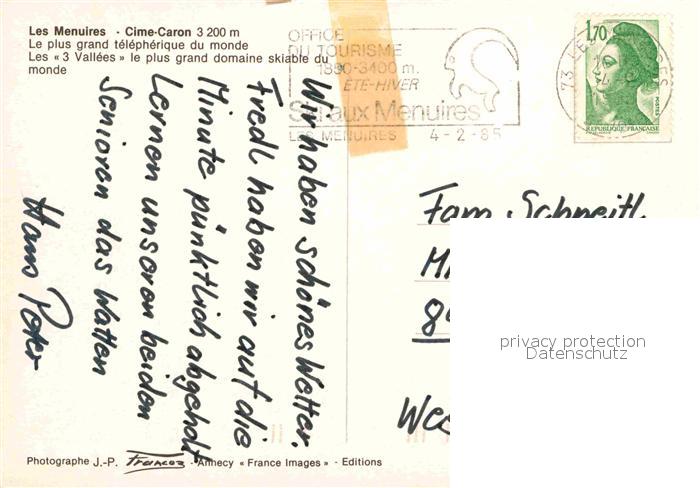 Les Menuires - Cime-Caron 3 200 m
Le plus grand téléphérique du monde
Les « 3 Vallées » le plus grand domaine skiable du
monde
OFFICE
DU TOURISME
1850-3400 m.
ÉTÉ-HIVER
Ski aux Menuires
LES MENUIRES 4-2-85
1,70
POSTES
REPUBLIQUE FRANÇAISE
Wir haben schönes Wetter.
Fredl haben wir auf die
Minute pünktlich abgeholt
Lernen unseren beiden
Senioren das Watten
Hans Peter
Fam. Schneitl
privacy protection
Datenschutz
Photographe J.-P. Francoz - Annecy « France Images » - Editions